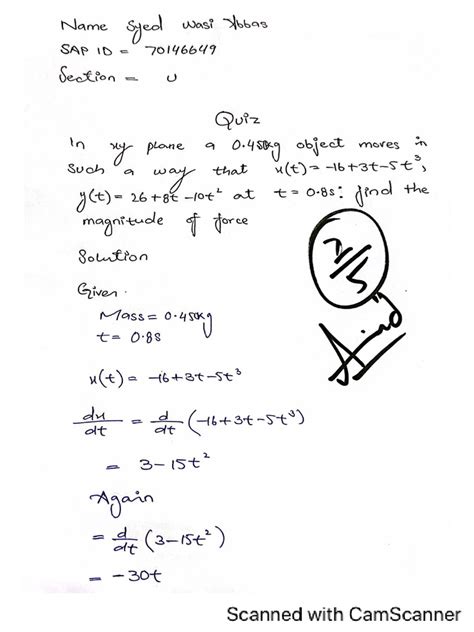 Name Syed Wasi Abbas
SAP ID = 70146649
Section = U
Quiz
In xy plane a 0.450kg object moves in
such a way that x(t) = -16+3t-5t³,
y(t) = 26+8t-10t² at t = 0.8s: find the
magnitude of force
Solution
Given.
Mass = 0.450kg
t = 0.8s
x(t) = -16+3t-5t³
dx/dt = d/dt (-16+3t-5t³)
= 3-15t²
Again
= d/dt (3-15t²)
= -30t
Scanned with CamScanner